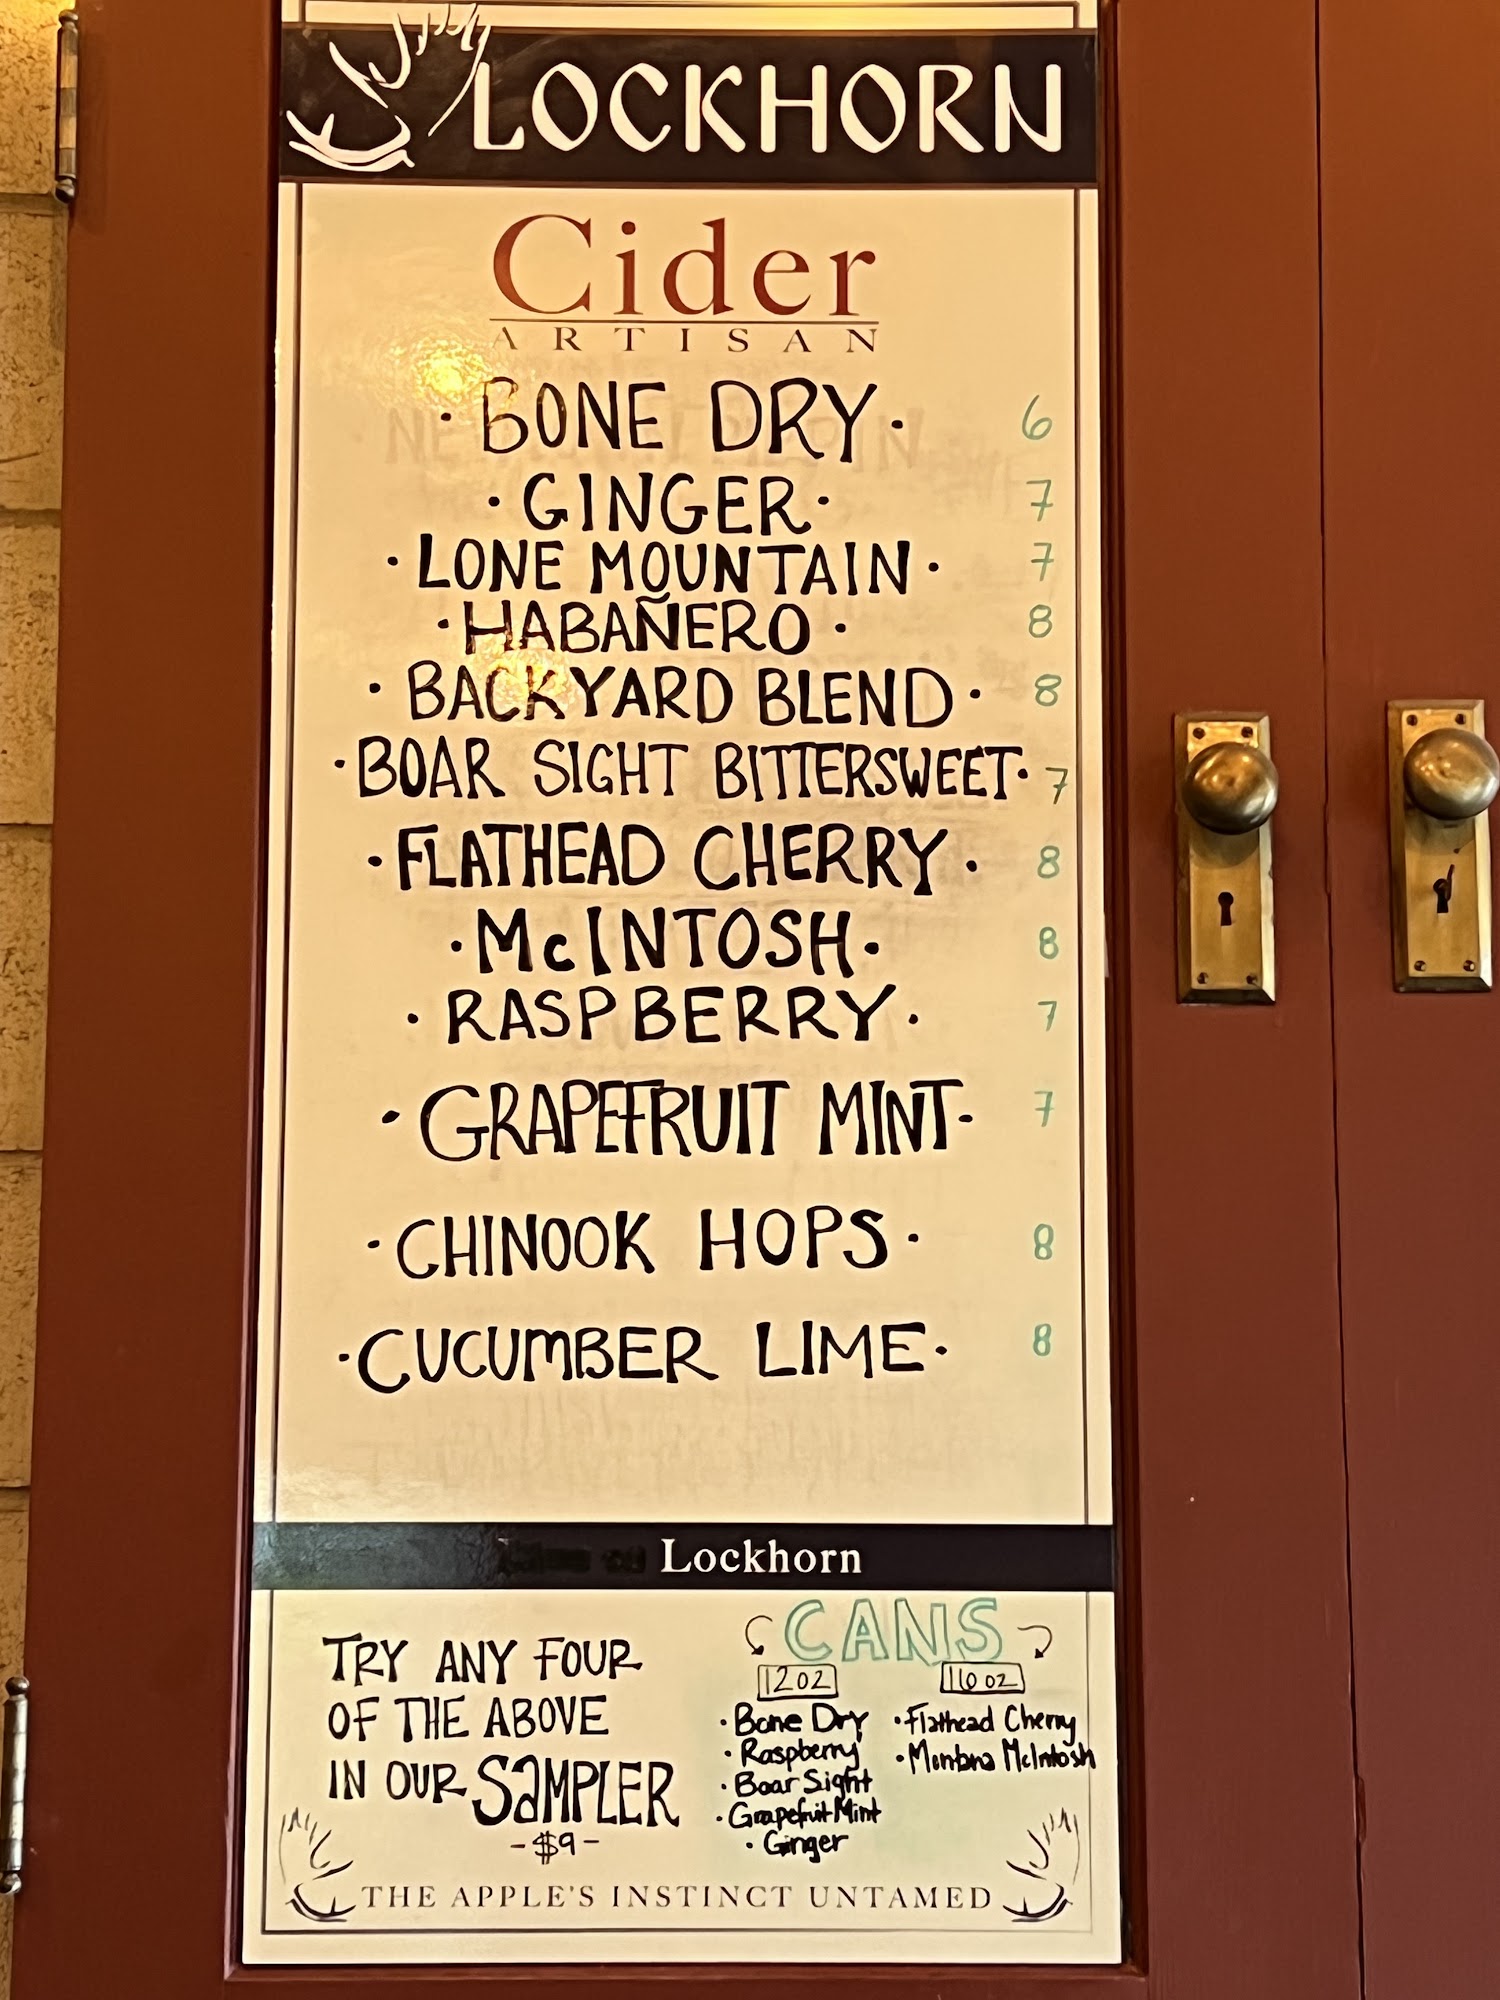 LOCKHORN
Cider
ARTISAN
· BONE DRY · 6
· GINGER · 7
· LONE MOUNTAIN · 7
· HABAÑERO · 8
· BACKYARD BLEND · 8
· BOAR SIGHT BITTERSWEET · 7
· FLATHEAD CHERRY · 8
· McINTOSH · 8
· RASPBERRY · 7
· GRAPEFRUIT MINT · 7
· CHINOOK HOPS · 8
· CUCUMBER LIME · 8
Lockhorn
TRY ANY FOUR
OF THE ABOVE
IN OUR SAMPLER
- $9 -
CANS
12 oz
· Bone Dry
· Raspberry
· Boar Sight
· Grapefruit Mint
· Ginger
16 oz
· Flathead Cherry
· Montana McIntosh
THE APPLE'S INSTINCT UNTAMED